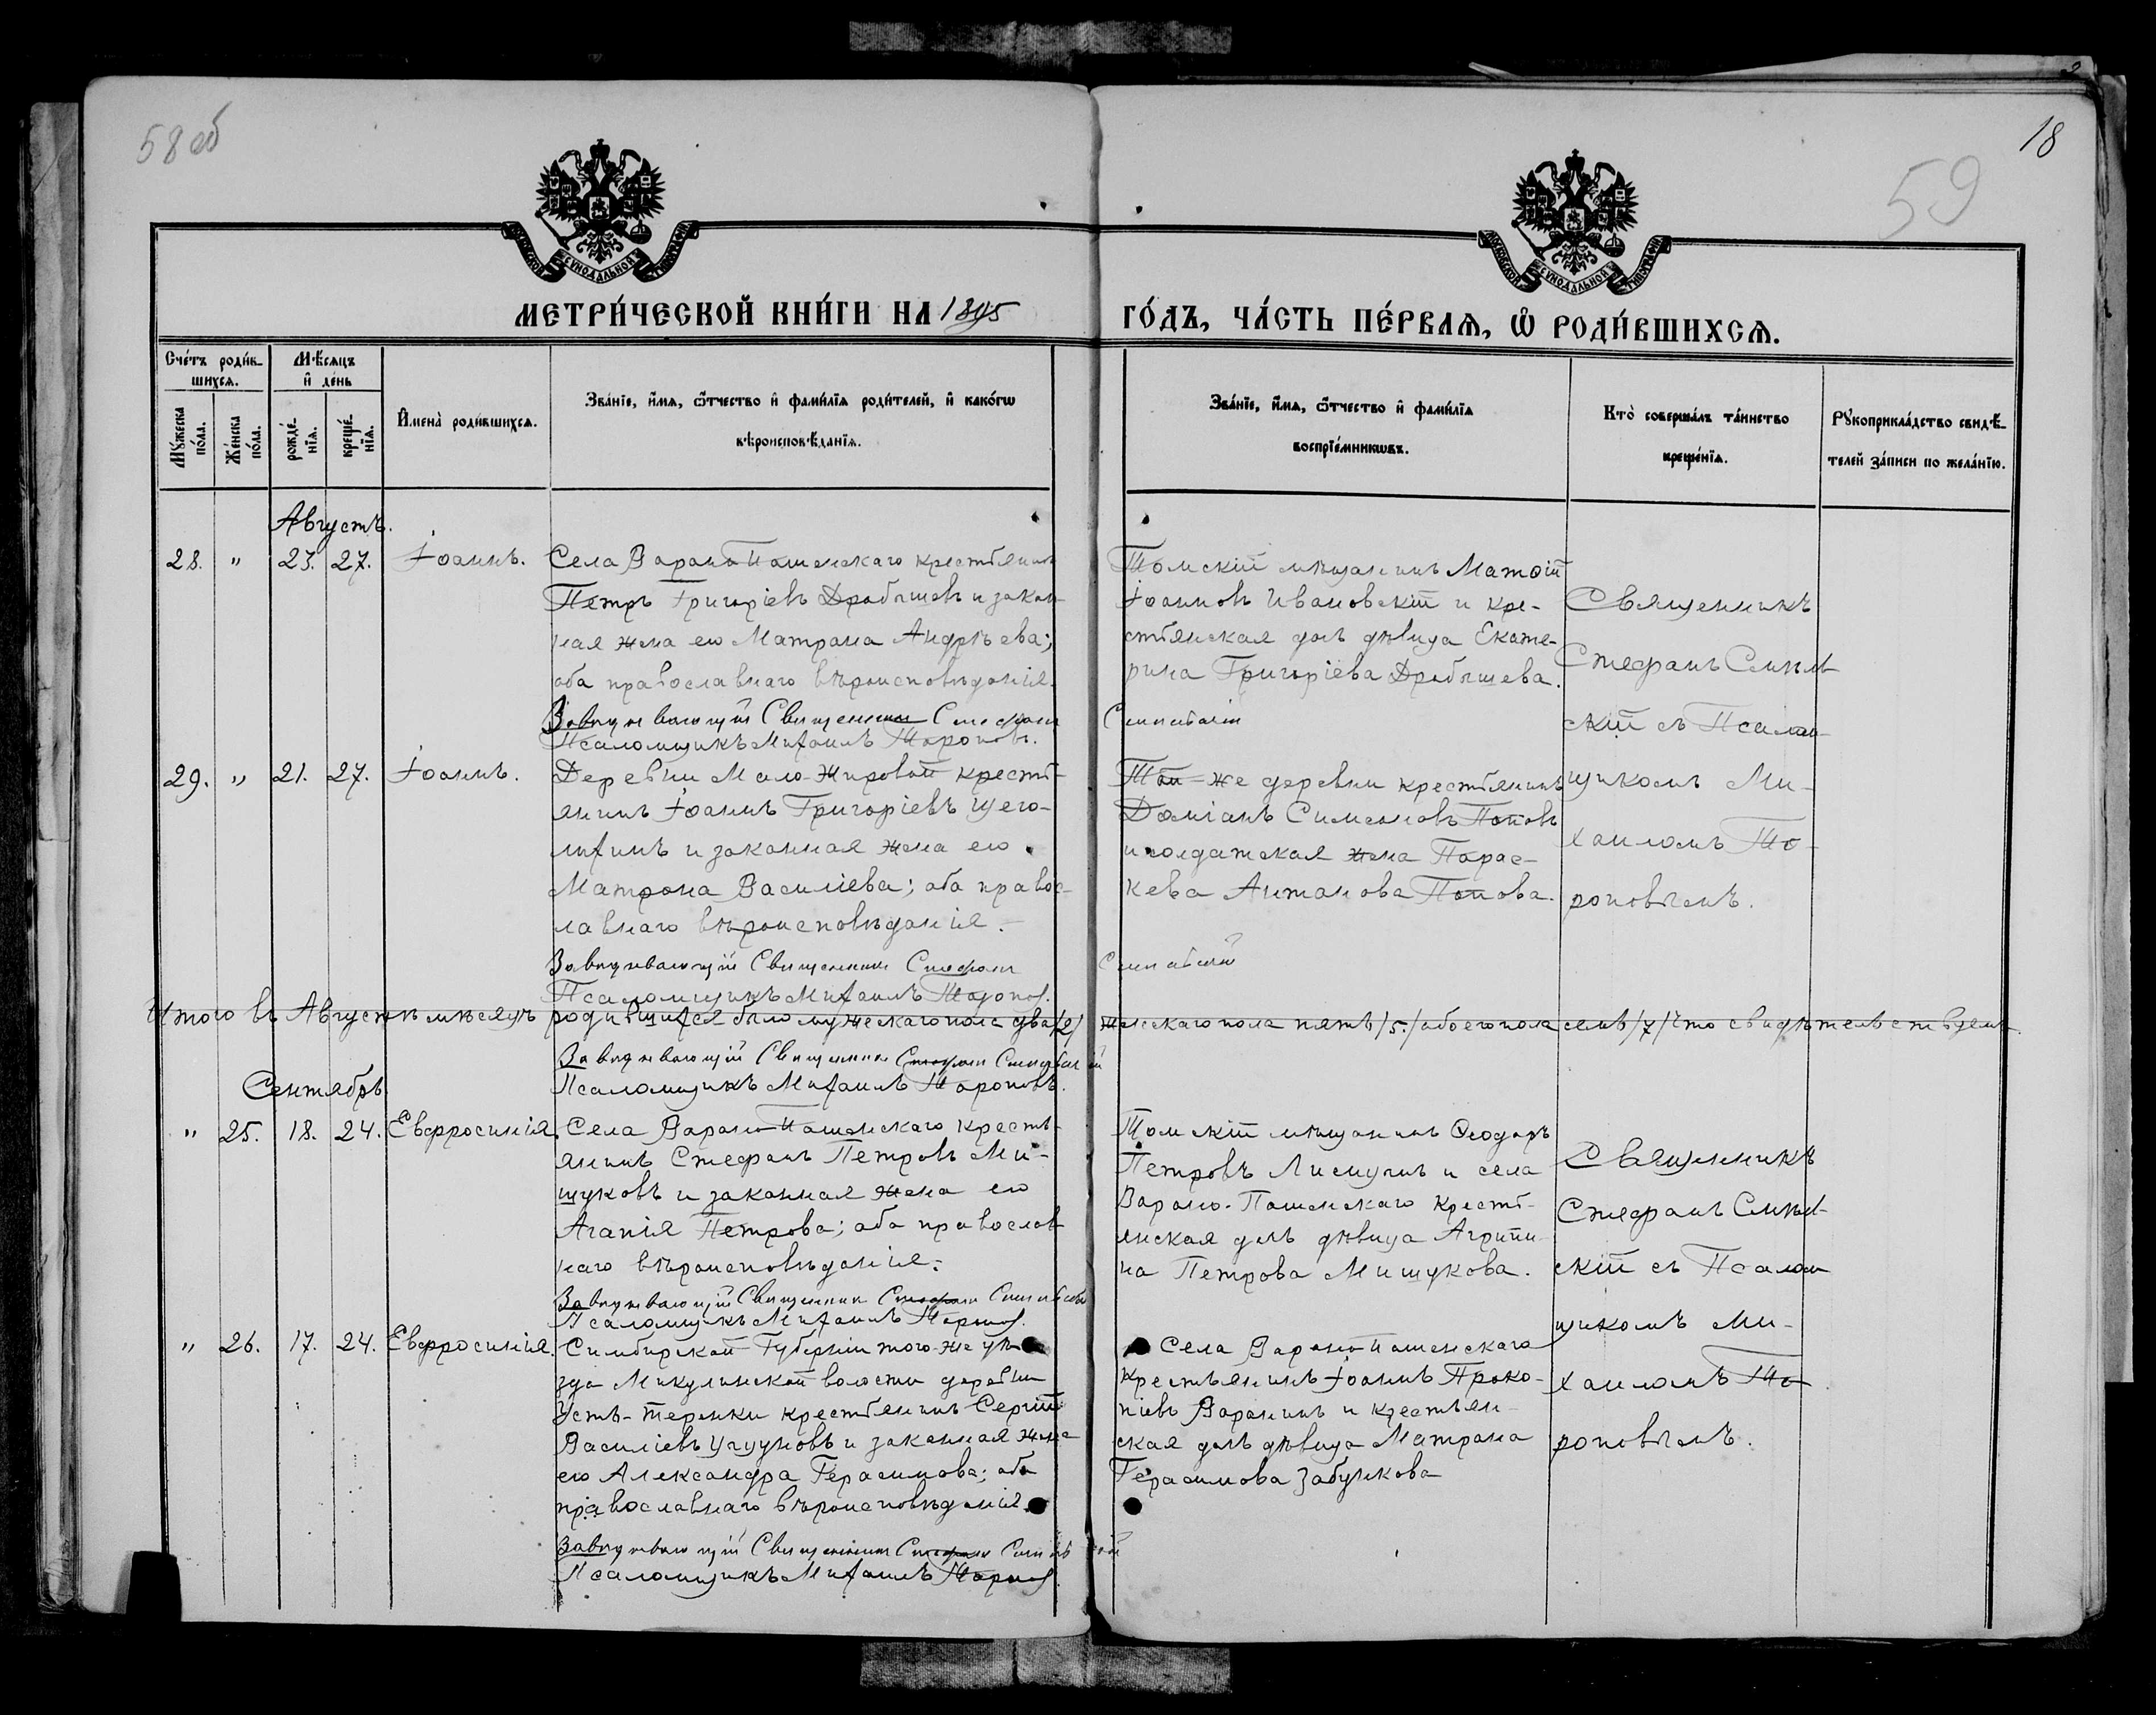 58 об
18
59
МОСКОВСКОЙ СѴНОДАЛЬНОЙ ТИПОГРАФІИ
МОСКОВСКОЙ СѴНОДАЛЬНОЙ ТИПОГРАФІИ
МЕТРИ́ЧЕСКОЙ КНИ́ГИ НА 1895 ГО́ДЪ, ЧА́СТЬ ПЕ́РВАѦ, Ѽ РОДИ́ВШИХСѦ.
Сче́тъ роди́в-
шихсѧ.
Мѣ́сѧцъ
и҆ де́нь
Мꙋ́жеска
по́ла.
Же́нска
по́ла.
рожде́-
нїѧ.
креще́-
нїѧ.
И҆мена̀ роди́вшихсѧ.
Зва́нїе, и҆́мѧ, ѻ҆́тчество и҆ фами́лїѧ роди́телей, и҆ како́гѡ
вѣроисповѣ́данїѧ.
Зва́нїе, и҆́мѧ, ѻ҆́тчество и҆ фами́лїѧ
воспрїе́мникѡвъ.
Кто̀ соверша́лъ та́инство
креще́нїѧ.
Рꙋкоприкла́дство свидѣ́-
телей за́писи по жела́нїю.
Августъ.
28. " 23. 27. Іоаннъ.
Села Вороно-Пашенскаго крестьянинъ
Петръ Григоріевъ Дробышевъ и закон-
ная жена его Матрона Андрѣева;
оба православнаго вѣроисповѣданія.
Завѣдывающій Священникъ Стефанъ Синявскій
Псаломщикъ Михаилъ Тороповъ.
Томскій мѣщанинъ Матѳій
Іоанновъ Ивановскій и кре-
стьянская дочь дѣвица Екате-
рина Григоріева Дробышева.
Священникъ
Стефанъ Синяв-
скій съ Псалом-
щикомъ Ми-
хаиломъ То-
роповымъ.
29. " 21. 27. Іоаннъ.
Деревни Мало-Жировой кресть-
янинъ Іоаннъ Григоріевъ Щего-
лихинъ и законная жена его
Матрона Василіева; оба правос-
лавнаго вѣроисповѣданія.
Завѣдывающій Священникъ Стефанъ Синявскій
Псаломщикъ Михаилъ Торопов.
Той-же деревни крестьянинъ
Даміанъ Симеоновъ Поповъ
и солдатская жена Парас-
кева Антонова Попова.
Итого въ Августѣ мѣсяцѣ родившихся было мужескаго пола два /2/ женскаго пола пять /5/ обоего пола семь /7/ Что свидѣтельствуемъ.
Завѣдывающій Священникъ Стефанъ Синявскій
Псаломщикъ Михаилъ Торопов.
Сентябрь.
" 25. 18. 24. Евфросинія.
Села Вороно-Пашенскаго кресть-
янинъ Стефанъ Петровъ Ми-
щуковъ и законная жена его
Агапія Петрова; оба православ-
наго вѣроисповѣданія.
Завѣдывающій Священникъ Стефанъ Синявскій
Псаломщикъ Михаилъ Торопов.
Томскій мѣщанинъ Ѳеодоръ
Петровъ Лисицинъ и села
Вороно-Пашенскаго кресть-
янская дочь дѣвица Агрипи-
на Петрова Мищукова.
Священникъ
Стефанъ Синяв-
скій съ Псалом-
щикомъ Ми-
хаиломъ То-
роповымъ.
" 26. 17. 24. Евфросинія.
Симбирской Губерніи того-же уѣ-
зда Микулинской волости деревни
Усть-Теренки крестьянинъ Сергій
Василіевъ и законная жена
его Александра Герасимова; оба
православнаго вѣроисповѣданія.
Завѣдывающій Священникъ Стефанъ Синявскій
Псаломщикъ Михаилъ Торопов.
Села Вороно-Пашенскаго
крестьянинъ Іоаннъ Проко-
піевъ Воронинъ и крестьян-
ская дочь дѣвица Матрона
Герасимова Забункова